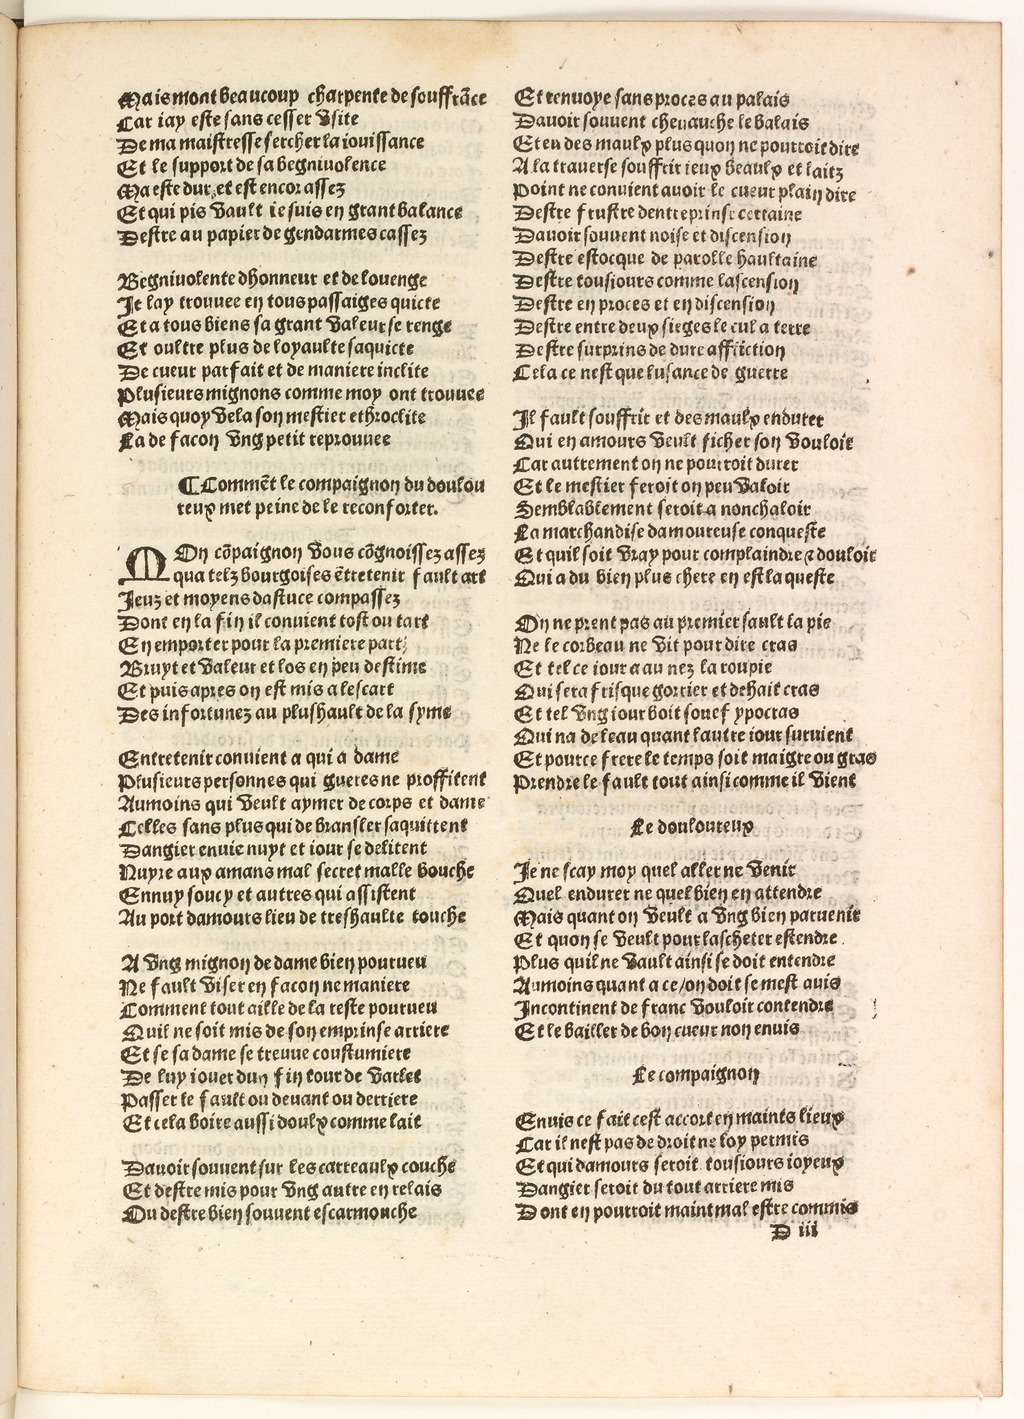 Mais mont beaucoup charpente de souffrãce
Car iay este sans cesser Vsite
De ma maistresse sercher la iouissance
Et le support de sa begniuolence
Ma este dur, et est encor assez
Et qui pis Vault ie suis en grant balance
Destre au papier de gendarmes cassez

Begniuolente dhonneur et de louenge
Je lay trouuee en tous passaiges quicte
Et a tous biens sa grant Valeur se renge
Et oultre plus de loyaulte saquicte
De cueur parfait et de maniere inclite
Plusieurs mignons comme moy ont trouuee
Mais quoy Vela son mestier ethroclite
La de facon Vng petit reprouuee

¶ Commẽt le compaignon du doulou
reux met peine de le reconforter.

MOn cõpaignon Vous cõgnoissez assez
qua telz bourgoises ẽtretenir fault art
Jeuz et moyens dastuce compassez
Dont en la fin il conuient tost ou tart
En emporter pour la premiere part
Bruyt et Valeur et los en peu destime
Et puis apres on est mis a lescart
Des infortunez au plushault de la syme

Entretenir conuient a qui a dame
Plusieurs personnes qui gueres ne proffitent
Aumoins qui Veult aymer de corps et dame
Celles sans plus qui de bransler saquittent
Dangier enuie nuyt et iour se delitent
Nuyre aux amans mal secret malle bouche
Ennuy soucy et autres qui assistent
Au port damours lieu de treshaulte touche

A Vng mignon de dame bien pourueu
Ne fault Viser en facon ne maniere
Comment tout aille de la reste pourueu
Quil ne soit mis de son emprinse arriere
Et se sa dame se treuue coustumiere
De luy iouer dun fin tour de Varlet
Passer le fault ou deuant ou derriere
Et cela boire aussi doulx comme lait

Dauoir souuent sur les carreaulx couche
Et destre mis pour Vng autre en relais
Ou destre bien souuent escarmouche
Et renuoye sans proces au palais
Dauoir souuent cheuauche le balais
Et eu des maulx plus quon ne pourroit dire
A la trauerse souffrir ieux beaulx et laitz
Point ne conuient auoir le cueur plain dire
Destre frustre dentreprinse certaine
Dauoir souuent noise et discension
Destre estocque de parolle haultaine
Destre tousiours comme lascension
Destre en proces et en discension
Destre entre deux sieges le cul a terre
Destre surprins de dure affliction
Cela ce nest que lusance de guerre

Il fault souffrir et des maulx endurer
Qui en amours Veult ficher son Vouloir
Car autrement on ne pourroit durer
Et le mestier feroit on peu Valoir
Semblablement seroit a nonchaloir
La marchandise damoureuse conqueste
Et quil soit Vray pour complaindre & douloir
Qui a du bien plus chere en est la queste

On ne prent pas au premier sault la pie
Ne le corbeau ne Vit pour dire cras
Et tel ce iour a au nez la roupie
Qui sera frisque gorrier et dehait cras
Et tel Vng iour boit souef ypocras
Qui na de leau quant lautre iour suruient
Et pource frere le temps soit maigre ou gras
Prendre le fault tout ainsi comme il Vient

Le douloureux

Je ne scay moy quel aller ne Venir
Quel endurer ne quel bien en attendre
Mais quant on Veult a Vng bien paruenir
Et quon se Veult pour lascheter estendre
Plus quil ne Vault ainsi se doit entendre
Aumoins quant a ce/on doit se mest auis
Incontinent de franc Vouloir contendre
Et le bailler de bon cueur non enuis

Le compaignon

Enuis ce fait cest accort en maints lieux
Car il nest pas de droit ne loy permis
Et qui damours seroit tousiours ioyeux
Dangier seroit du tout arriere mis
Dont en pourroit maint mal estre commis
D iii